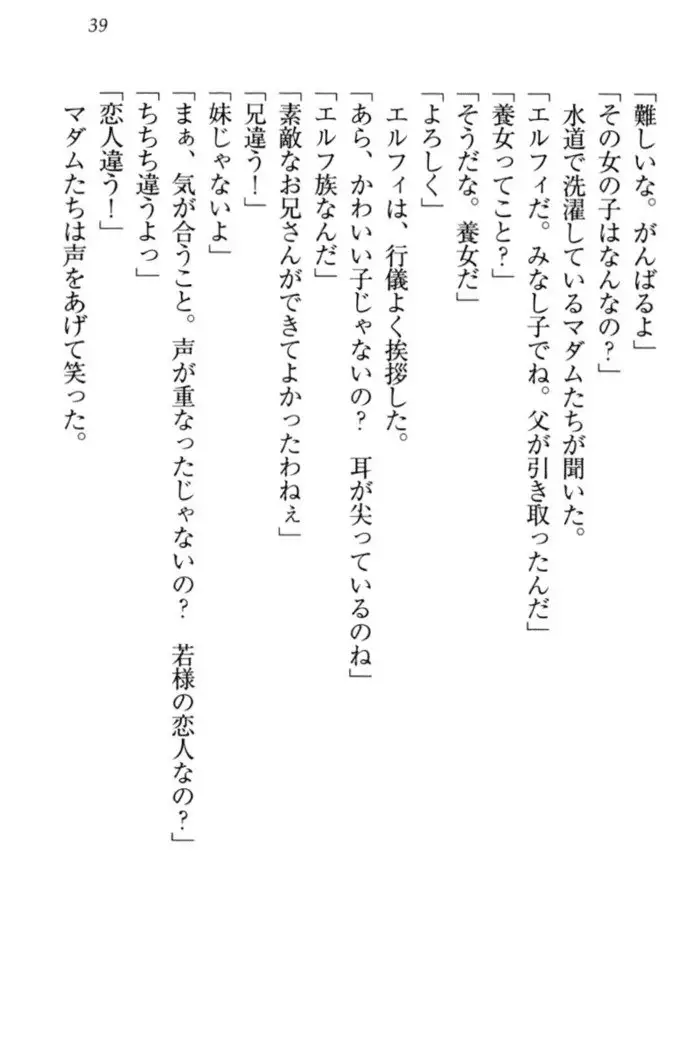 39
「難しいな。がんばるよ」
「その女の子はなんなの?」
水道で洗濯しているマダムたちが聞いた。
「エルフィだ。みなし子でね。父が引き取ったんだ」
「養女ってこと?」
「そうだな。養女だ」
「よろしく」
エルフィは、行儀よく挨拶した。
「あら、かわいい子じゃないの?　耳が尖っているのね」
「エルフ族なんだ」
「素敵なお兄さんができてよかったわねぇ」
「兄違う!」
「妹じゃないよ」
「まぁ、気が合うこと。声が重なったじゃないの?　若様の恋人なの?」
「ちちち違うよっ」
「恋人違う!」
マダムたちは声をあげて笑った。